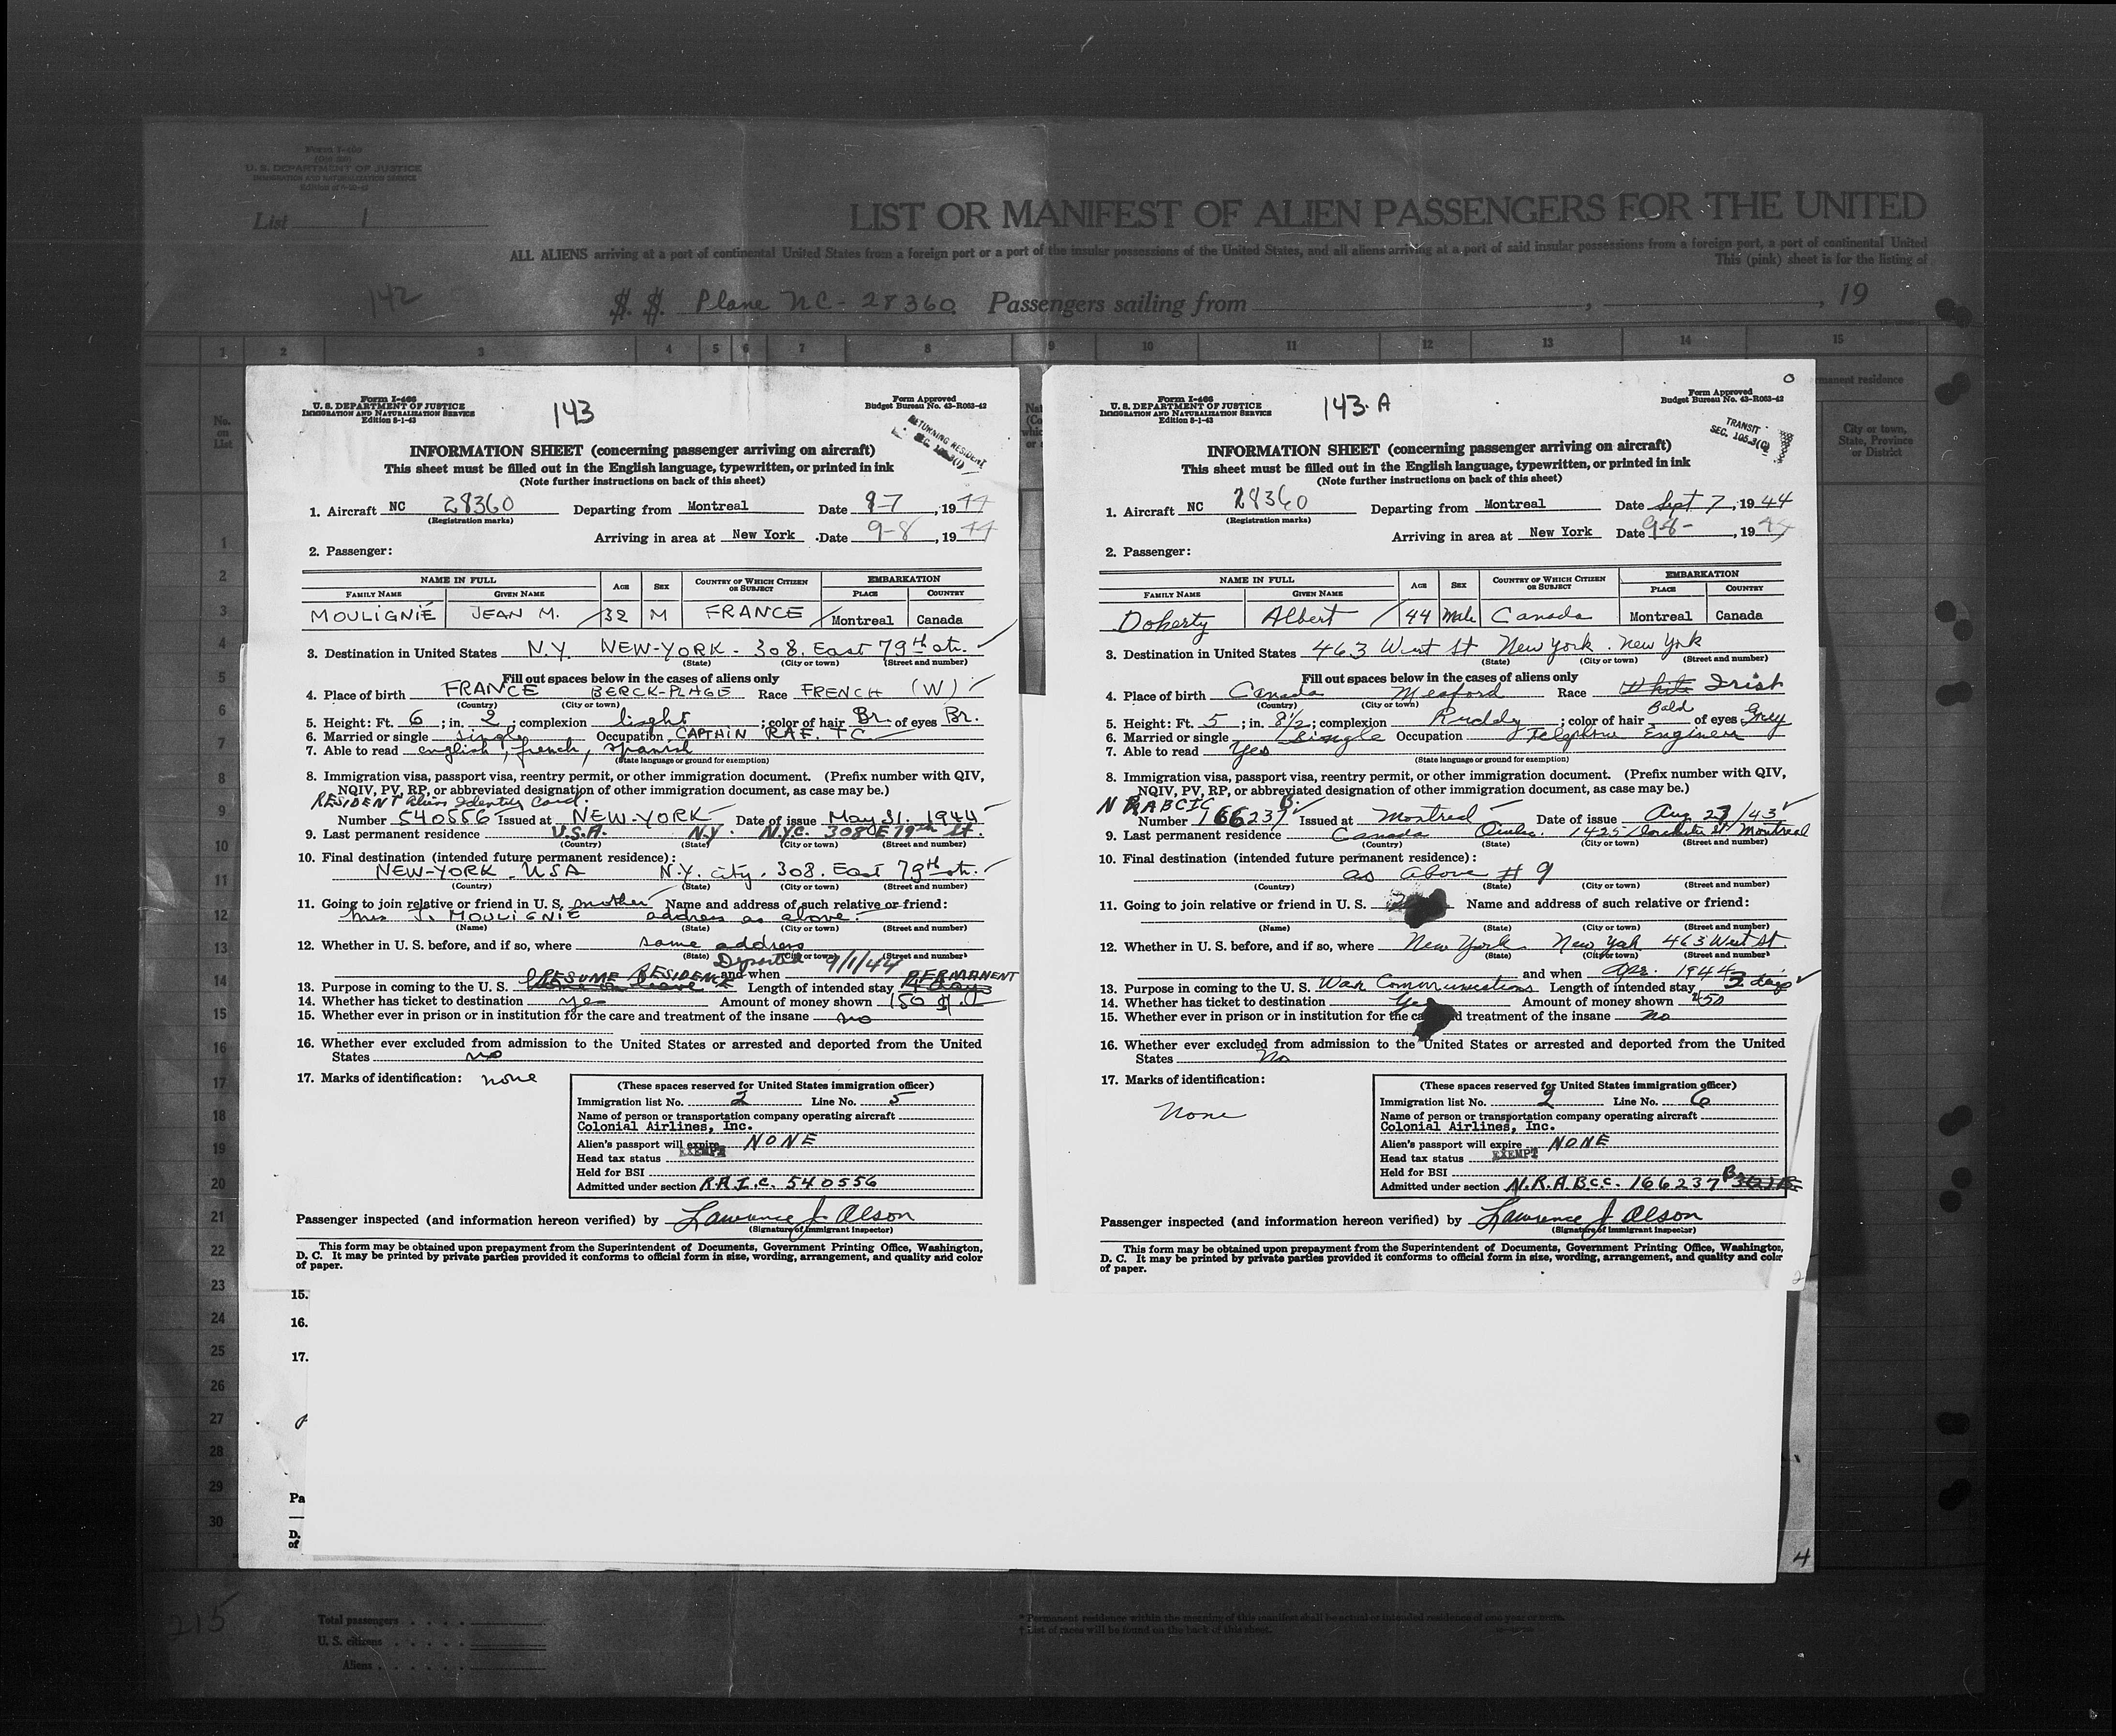 Form I-400
(Old 500)
U. S. DEPARTMENT OF JUSTICE
IMMIGRATION AND NATURALIZATION SERVICE
List 1
LIST OR MANIFEST OF ALIEN PASSENGERS FOR THE UNITED
ALL ALIENS arriving at a port of continental United States from a foreign port or a port of the insular possessions of the United States, and all aliens arriving at a port of said insular possessions from a foreign port, a port of continental United
This (pink) sheet is for the listing of
142
S. S. Plane NC-28360 Passengers sailing from , , 19
1 2 3 4 5 6 7 8 9 10 11 12 13 14 15
No. on List
rmanent residence
City or town, State, Province or District
Form I-466
U. S. DEPARTMENT OF JUSTICE
IMMIGRATION AND NATURALIZATION SERVICE
Edition 8-1-43
143
Form Approved
Budget Bureau No. 43-R063-42
RETURNING RESIDENT
SEC.
INFORMATION SHEET (concerning passenger arriving on aircraft)
This sheet must be filled out in the English language, typewritten, or printed in ink
(Note further instructions on back of this sheet)
1. Aircraft NC 28360 Departing from Montreal Date 9-7, 1944
(Registration marks)
Arriving in area at New York Date 9-8, 1944
2. Passenger:
NAME IN FULL AGE SEX COUNTRY OF WHICH CITIZEN OR SUBJECT EMBARKATION
FAMILY NAME GIVEN NAME PLACE COUNTRY
MOULIGNIÉ JEAN M. 32 M FRANCE Montreal Canada
3. Destination in United States N.Y. NEW-YORK - 308. East 79th str.
(State) (City or town) (Street and number)
Fill out spaces below in the cases of aliens only
4. Place of birth FRANCE BERCK-PLAGE Race FRENCH (W)
(Country) (City or town)
5. Height: Ft. 6; in. 2; complexion light; color of hair Br. of eyes Br.
6. Married or single single Occupation CAPTAIN RAF. TC
7. Able to read english, french, spanish
(State language or ground for exemption)
8. Immigration visa, passport visa, reentry permit, or other immigration document. (Prefix number with QIV,
NQIV, PV, RP, or abbreviated designation of other immigration document, as case may be.)
RESIDENT Alien Identity Card.
Number 540556 Issued at NEW-YORK Date of issue May 31. 1944
9. Last permanent residence U.S.A. N.Y. N.Y.C. 308 E 79th St.
(Country) (State) (City or town) (Street and number)
10. Final destination (intended future permanent residence):
NEW-YORK - USA N.Y. city. 308. East 79th str.
(Country) (State) (City or town) (Street and number)
11. Going to join relative or friend in U. S. mother Name and address of such relative or friend:
Mrs J. MOULIGNIÉ address as above.
(Name) (State) (City or town) (Street and number)
12. Whether in U. S. before, and if so, where same address
(State) (City or town) (Street and number)
Departed and when 9/1/44
13. Purpose in coming to the U. S. RESUME RESIDENCE Length of intended stay PERMANENT
14. Whether has ticket to destination yes Amount of money shown 150 $
15. Whether ever in prison or in institution for the care and treatment of the insane no
16. Whether ever excluded from admission to the United States or arrested and deported from the United
States no
17. Marks of identification: none
(These spaces reserved for United States immigration officer)
Immigration list No. 2 Line No. 5
Name of person or transportation company operating aircraft
Colonial Airlines, Inc.
Alien's passport will expire NONE
Head tax status EXEMPT
Held for BSI
Admitted under section R.A.I.C. 540556
Passenger inspected (and information hereon verified) by Lawrence J Olson
(Signature of immigrant inspector)
This form may be obtained upon prepayment from the Superintendent of Documents, Government Printing Office, Washington,
D. C. It may be printed by private parties provided it conforms to official form in size, wording, arrangement, and quality and color
of paper.
Form I-466
U. S. DEPARTMENT OF JUSTICE
IMMIGRATION AND NATURALIZATION SERVICE
Edition 8-1-43
143-A
Form Approved
Budget Bureau No. 43-R063-42
TRANSIT
SEC. 105.3(Q)
INFORMATION SHEET (concerning passenger arriving on aircraft)
This sheet must be filled out in the English language, typewritten, or printed in ink
(Note further instructions on back of this sheet)
1. Aircraft NC 28360 Departing from Montreal Date Sept 7, 1944
(Registration marks)
Arriving in area at New York Date 9-8-, 1944
2. Passenger:
NAME IN FULL AGE SEX COUNTRY OF WHICH CITIZEN OR SUBJECT EMBARKATION
FAMILY NAME GIVEN NAME PLACE COUNTRY
Doherty Albert 44 Male Canada Montreal Canada
3. Destination in United States 463 West St New York. New York
(State) (City or town) (Street and number)
Fill out spaces below in the cases of aliens only
4. Place of birth Canada Meaford Race White Irish
(Country) (City or town)
5. Height: Ft. 5; in. 8½; complexion Ruddy; color of hair Bald of eyes Grey
6. Married or single Single Occupation Telephone Engineer
7. Able to read Yes
(State language or ground for exemption)
8. Immigration visa, passport visa, reentry permit, or other immigration document. (Prefix number with QIV,
NQIV, PV, RP, or abbreviated designation of other immigration document, as case may be.)
NRABCIC
Number 166237 B. Issued at Montreal Date of issue Aug 27/43
9. Last permanent residence Canada Quebec. 1425 St Montreal
(Country) (State) (City or town) (Street and number)
10. Final destination (intended future permanent residence):
as above # 9
(Country) (State) (City or town) (Street and number)
11. Going to join relative or friend in U. S. Name and address of such relative or friend:
(Name) (State) (City or town) (Street and number)
12. Whether in U. S. before, and if so, where New York New York 463 West St.
(State) (City or town) (Street and number)
and when Apr. 1944
13. Purpose in coming to the U. S. War Communications Length of intended stay 3 days
14. Whether has ticket to destination Yes Amount of money shown $50
15. Whether ever in prison or in institution for the ca d treatment of the insane no
16. Whether ever excluded from admission to the United States or arrested and deported from the United
States No
17. Marks of identification:
None
(These spaces reserved for United States immigration officer)
Immigration list No. 2 Line No. 6
Name of person or transportation company operating aircraft
Colonial Airlines, Inc.
Alien's passport will expire NONE
Head tax status EXEMPT
Held for BSI
Admitted under section N.R.A.B.C.C. 166237 B
Passenger inspected (and information hereon verified) by Lawrence J Olson
(Signature of immigrant inspector)
This form may be obtained upon prepayment from the Superintendent of Documents, Government Printing Office, Washington,
D. C. It may be printed by private parties provided it conforms to official form in size, wording, arrangement, and quality and color
of paper.
1
2
3
4
5
6
7
8
9
10
11
12
13
14
15
16
17
18
19
20
21
22
23
24
25
26
27
28
29
30
15.
16.
17.
Pa
D.
of
4
215
Total passengers
U. S. citizens
Aliens
* Permanent residence within the meaning of this manifest shall be actual or intended residence of one year or more.
† List of races will be found on the back of this sheet.